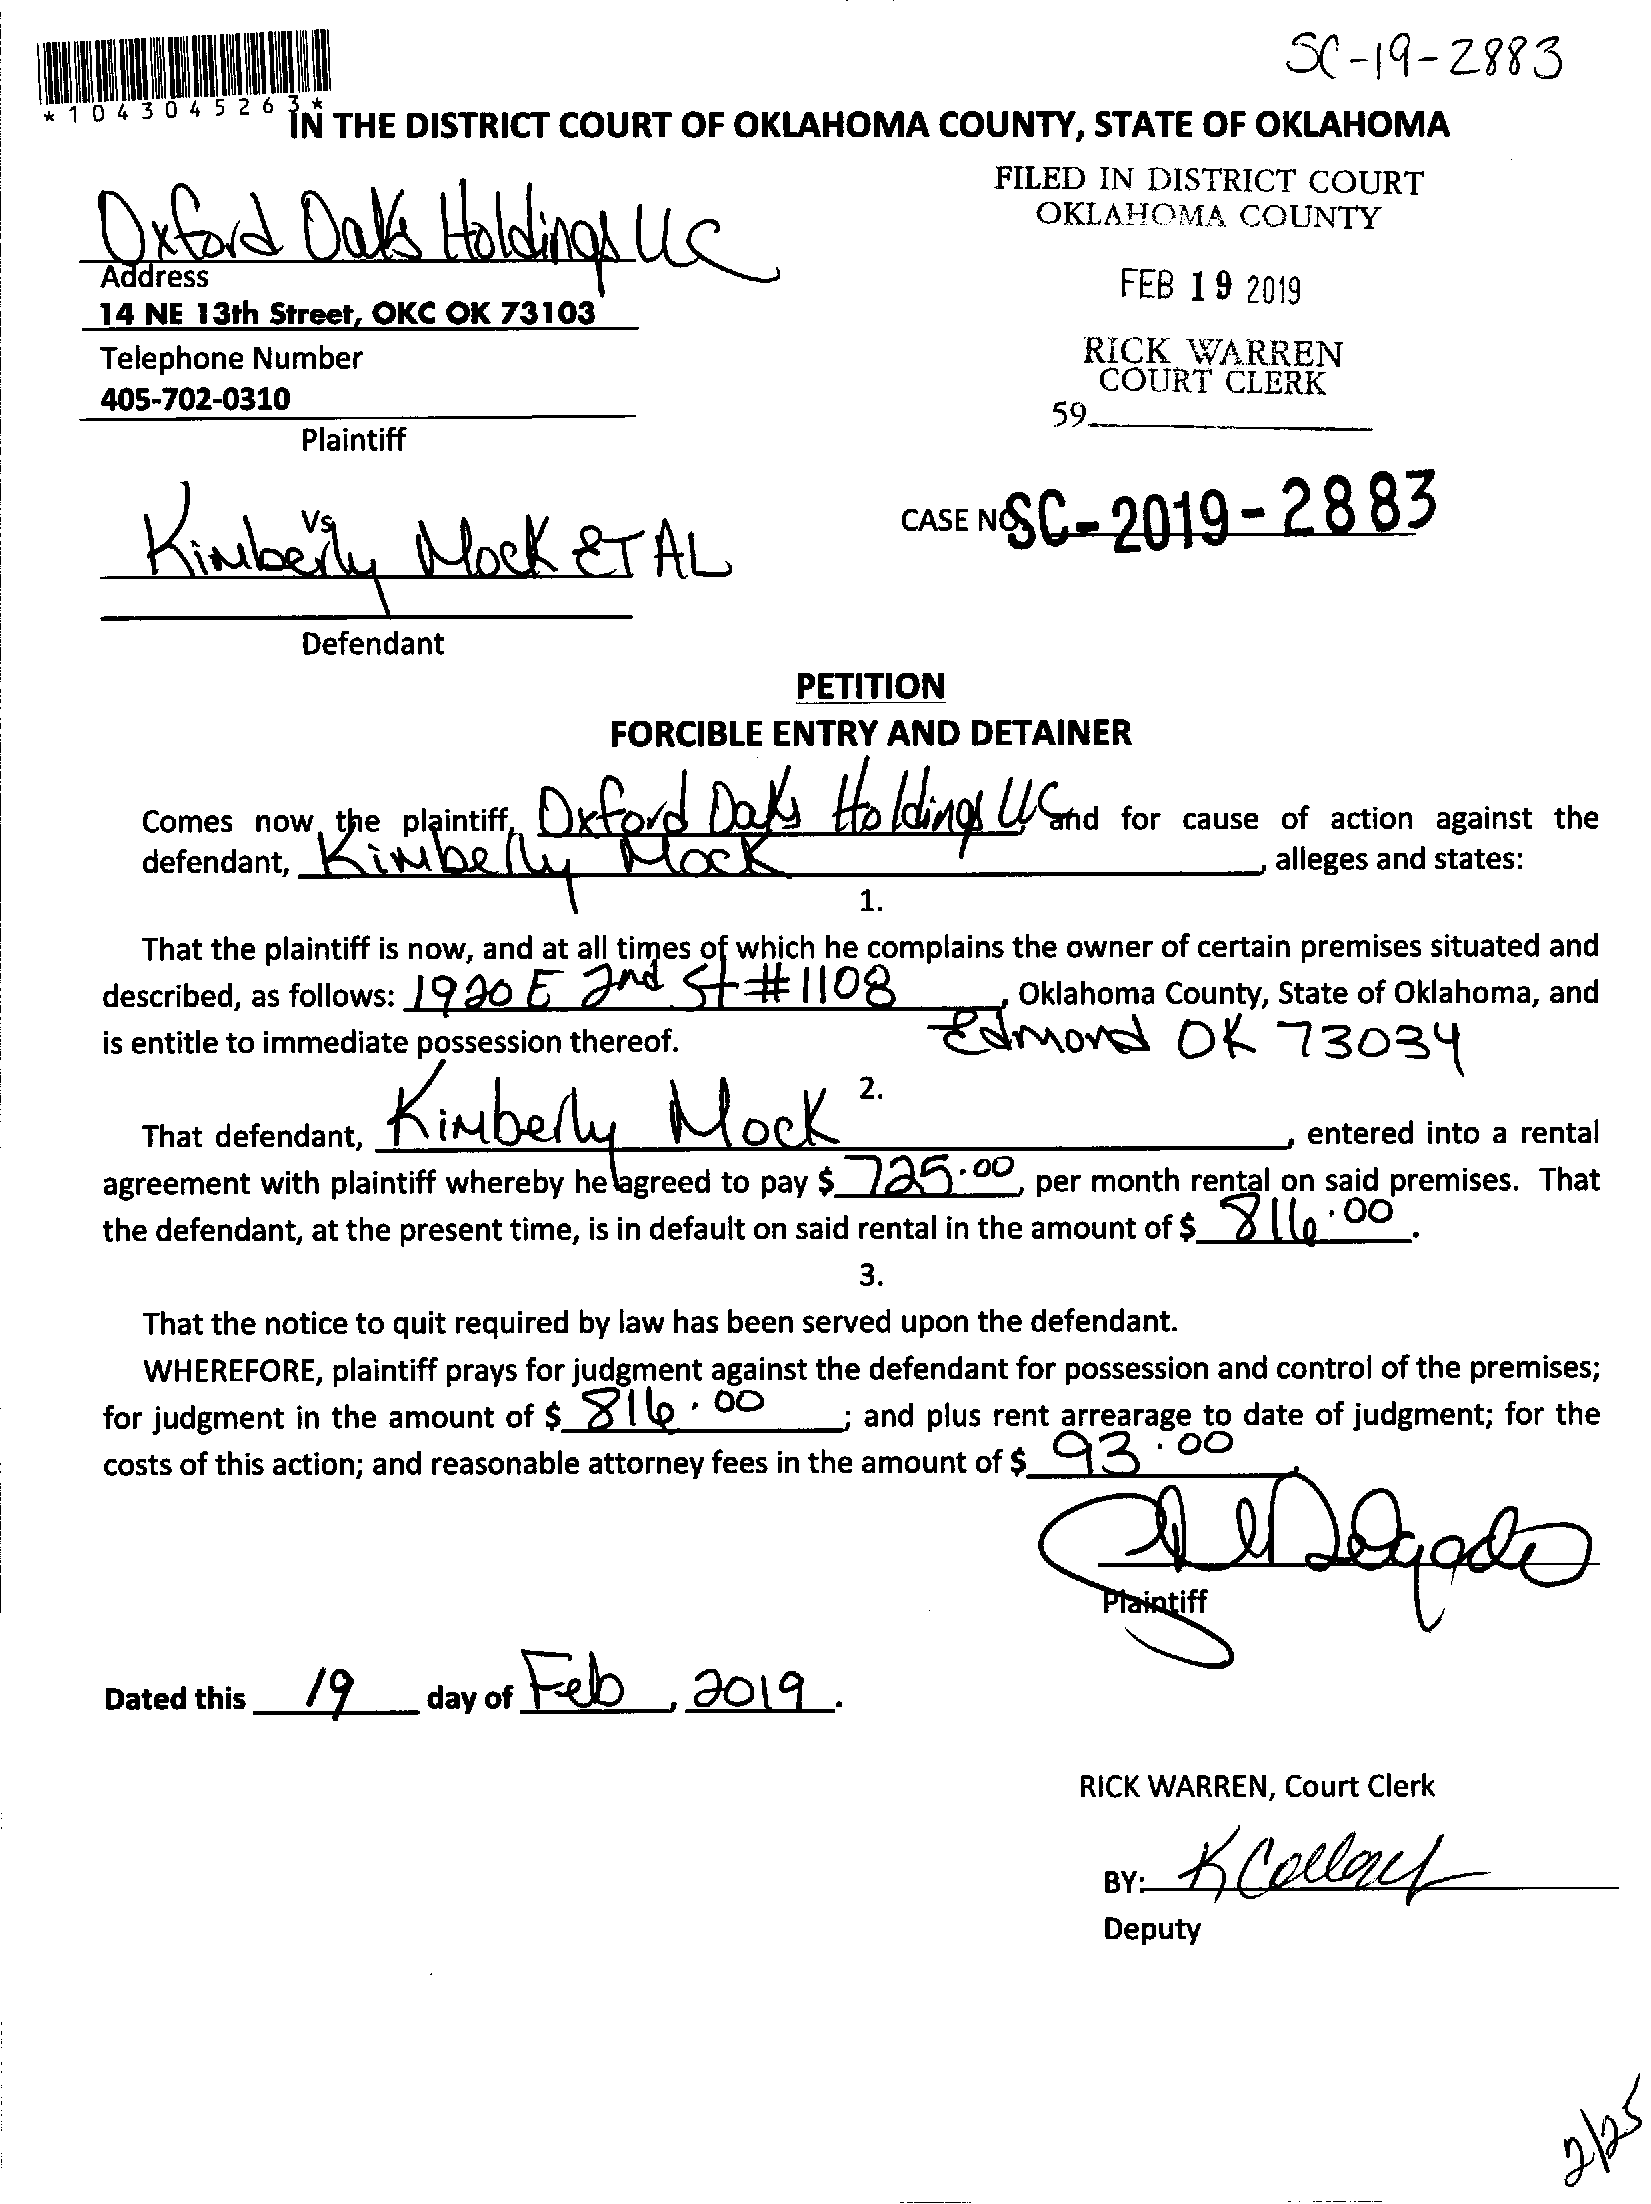 SC-19-2883
*1043045263*
IN THE DISTRICT COURT OF OKLAHOMA COUNTY, STATE OF OKLAHOMA
FILED IN DISTRICT COURT
OKLAHOMA COUNTY
Oxford Oaks Holdings LLC
Address
14 NE 13th Street, OKC OK 73103
FEB 19 2019
Telephone Number
405-702-0310
RICK WARREN
COURT CLERK
59
Plaintiff
Vs
Kimberly Mock ET AL
CASE NO. SC-2019-2883
Defendant
PETITION
FORCIBLE ENTRY AND DETAINER
Comes now, the plaintiff, Oxford Oaks Holdings LLC and for cause of action against the
defendant, Kimberly Mock, alleges and states:
1.
That the plaintiff is now, and at all times of which he complains the owner of certain premises situated and
described, as follows: 1920 E 2nd St #1108, Oklahoma County, State of Oklahoma, and
is entitle to immediate possession thereof. Edmond OK 73034
2.
That defendant, Kimberly Mock, entered into a rental
agreement with plaintiff whereby he agreed to pay $ 725.00, per month rental on said premises. That
the defendant, at the present time, is in default on said rental in the amount of $ 816.00.
3.
That the notice to quit required by law has been served upon the defendant.
WHEREFORE, plaintiff prays for judgment against the defendant for possession and control of the premises;
for judgment in the amount of $ 816.00; and plus rent arrearage to date of judgment; for the
costs of this action; and reasonable attorney fees in the amount of $ 93.00.
Delgado
Plaintiff
Dated this 19 day of Feb, 2019.
RICK WARREN, Court Clerk
BY:
Deputy
2/25